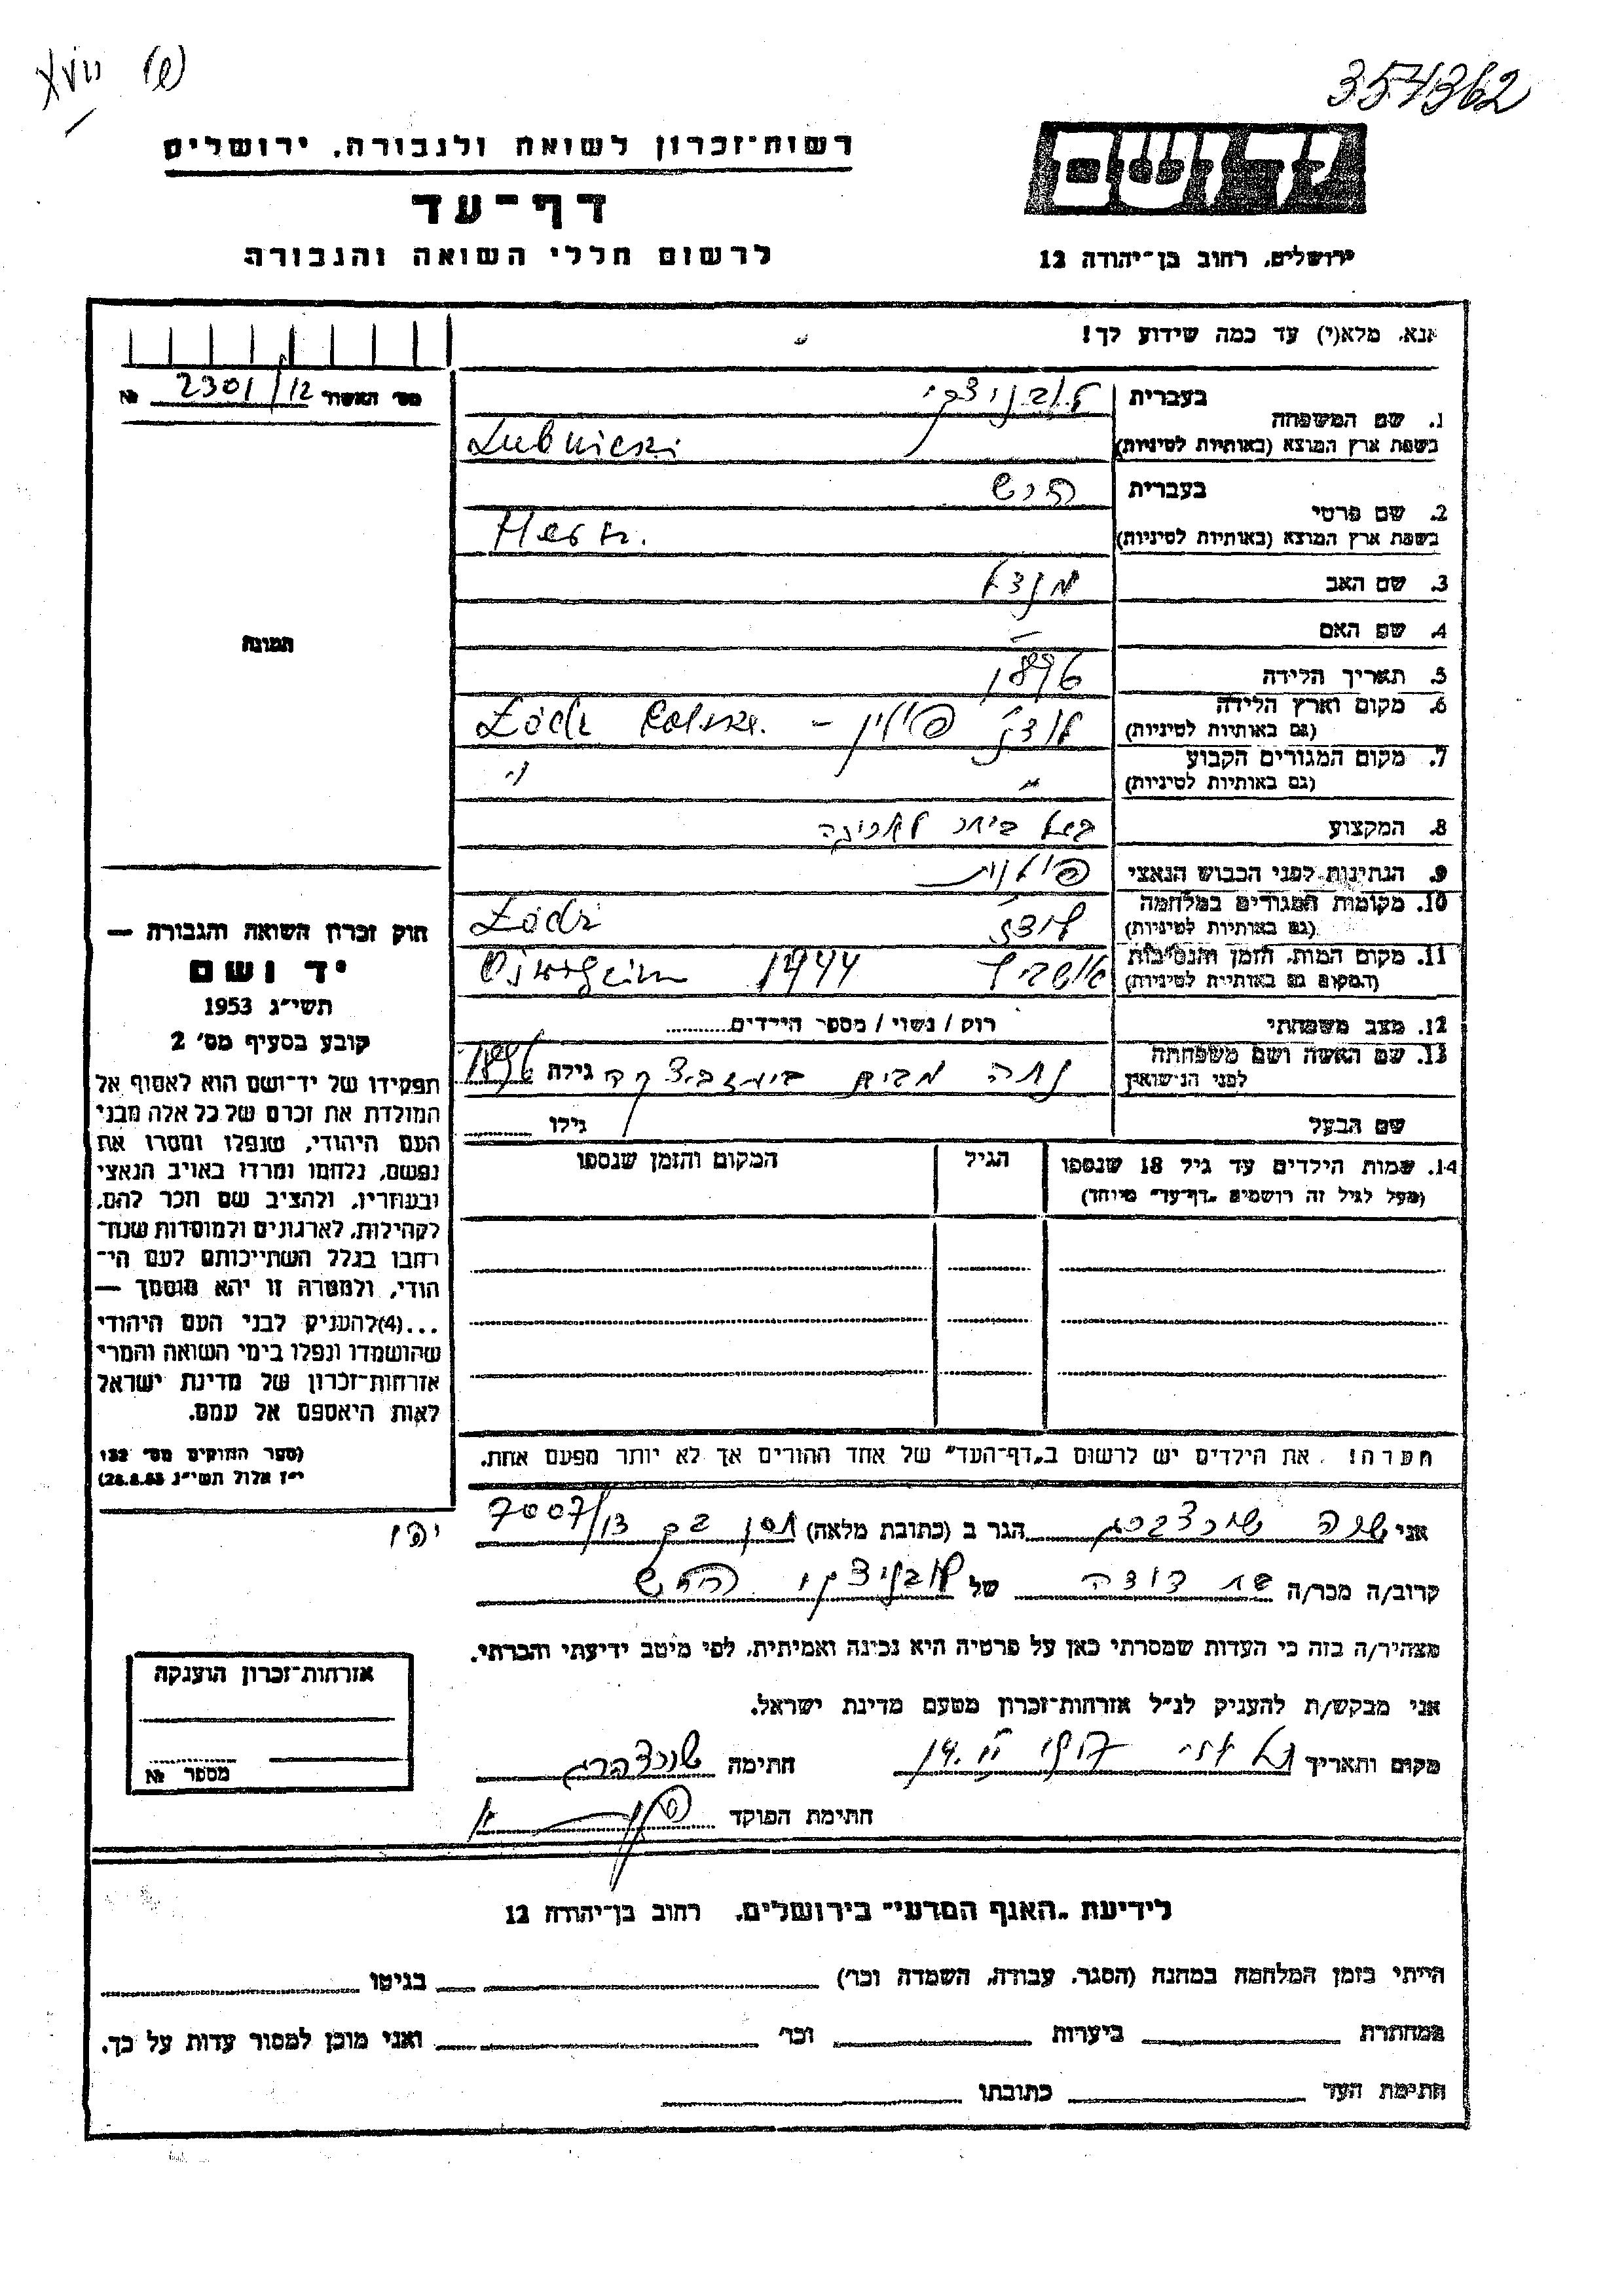 XVII (ש)
354362
רשות־זכרון לשואה ולגבורה, ירושלים
דף־עד
לרשום חללי השואה והגבורה
יד ושם
ירושלים, רחוב בן־יהודה 12
אנא, מלא(י) עד כמה שידוע לך!
מס׳ האשור 2301/12 №
1. שם המשפחה בעברית לובניצקי
בשפת ארץ המוצא (באותיות לטיניות) Lubnicki
2. שם פרטי בעברית הרש
בשפת ארץ המוצא (באותיות לטיניות) Hersh.
3. שם האב מנדל
4. שם האם —
5. תאריך הלידה 1896
6. מקום וארץ הלידה לודז׳ פולין – Łódź Polska.
(גם באותיות לטיניות)
7. מקום המגורים הקבוע " "
(גם באותיות לטיניות)
8. המקצוע בעל ביחר לאריגה
9. הנתינות לפני הכבוש הנאצי פולנית
10. מקומות המגורים במלחמה לודז Łódź
(גם באותיות לטיניות)
11. מקום המות, הזמן והנסיבות 1944
(המקום גם באותיות לטיניות)
12. מצב משפחתי רווק / נשוי / מספר הילדים
13. שם האשה ושם משפחתה נחה מבית גילה 1896
לפני הנישואין
שם הבעל גילו
14. שמות הילדים עד גיל 18 שנספו הגיל המקום והזמן שנספו
(מעל לגיל זה רושמים „דף־עד״ מיוחד)
הערה! את הילדים יש לרשום ב„דף־העד״ של אחד ההורים אך לא יותר מפעם אחת.
תמונה
חוק זכרון השואה והגבורה —
יד ושם
תשי״ג 1953
קובע בסעיף מס׳ 2
תפקידו של יד־ושם הוא לאסוף אל
המולדת את זכרם של כל אלה מבני
העם היהודי, שנפלו ומסרו את
נפשם, נלחמו ומרדו באויב הנאצי
ובעוזריו, ולהציב שם וזכר להם,
לקהילות, לארגונים ולמוסדות שנח־
רבו בגלל השתייכותם לעם הי־
הודי, ולמטרה זו יהא מוסמך —
...(4) להעניק לבני העם היהודי
שהושמדו ונפלו בימי השואה והמרי
אזרחות־זכרון של מדינת ישראל
לאות היאספם אל עמם.
(ספר החוקים מס׳ 132
י״ז אלול תשי״ג 28.8.53)
אני שרה הגר ב (כתובת מלאה) 7007/
קרוב/ה מכר/ה בת דודה של לובניצקי הרש
מצהיר/ה בזה כי העדות שמסרתי כאן על פרטיה היא נכונה ואמיתית, לפי מיטב ידיעתי והכרתי.
אני מבקש/ת להעניק לנ״ל אזרחות־זכרון מטעם מדינת ישראל.
מקום ותאריך חתימה
חתימת הפוקד
אזרחות־זכרון הוענקה
מספר №
לידיעת „האגף המדעי״ בירושלים, רחוב בן־יהודה 12
הייתי בזמן המלחמה במחנה (הסגר, עבודה, השמדה וכו׳) בגיטו
במחתרת ביערות וכו׳ ואני מוכן למסור עדות על כך.
חתימת העד כתובתו